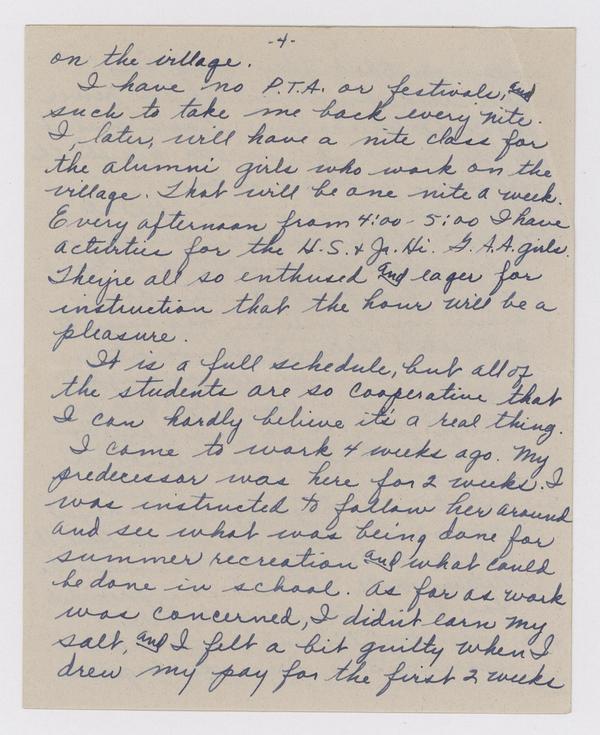 -4-
on the village.
I have no P.T.A. or festivals, and
such to take me back every nite.
I, later, will have a nite class for
the alumni girls who work on the
village. That will be one nite a week.
Every afternoon from 4:00-5:00 I have
activities for the H.S. & Jr. Hi. G.A.A. girls.
They're all so enthused and eager for
instruction that the hour will be a
pleasure.
It is a full schedule, but all of
the students are so cooperative that
I can hardly believe it's a real thing.
I came to work 4 weeks ago. My
predecessor was here for 2 weeks. I
was instructed to follow her around
and see what was being done for
summer recreation and what could
be done in school. As far as work
was concerned, I didn't earn my
salt, and I felt a bit guilty when I
drew my pay for the first 2 weeks